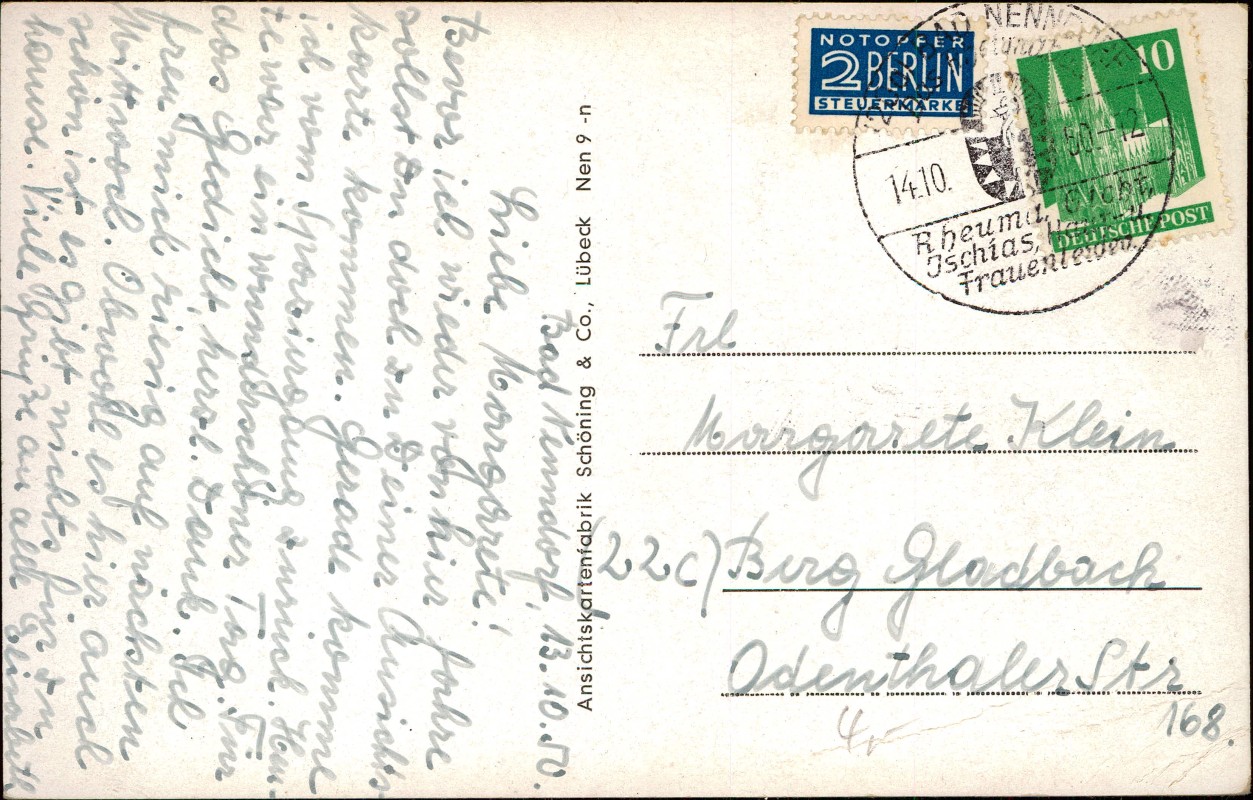 Bad Nenndorf, 13.10.50.
Liebe Margarete!
Bevor ich wieder von hier fahre
sollst Du doch zu Deiner Ansichts-
karte kommen. Gerade komme
ich vom Spaziergang zurück. Heu-
te war ein wunderschöner Tag. Für
das Gedicht, herzl. Dank. Ich
freu mich riesig auf nächsten
Mittwoch. Obwohl es hier auch
schön ist, es gibt nichts für zu
hause. Viele Grüße an alle Elisabeth
Ansichtskartenfabrik Schöning & Co., Lübeck Nen 9 -n
NOTOPFER
2 BERLIN
STEUERMARKE
10
DEUTSCHE POST
BAD NENNDORF
14.10. 50-12
Rheuma, Gicht,
Ischias,
Frauenleiden.
Frl
Margarete Klein
(22c) Berg Gladbach
Odenthaler Str
168.
4,-